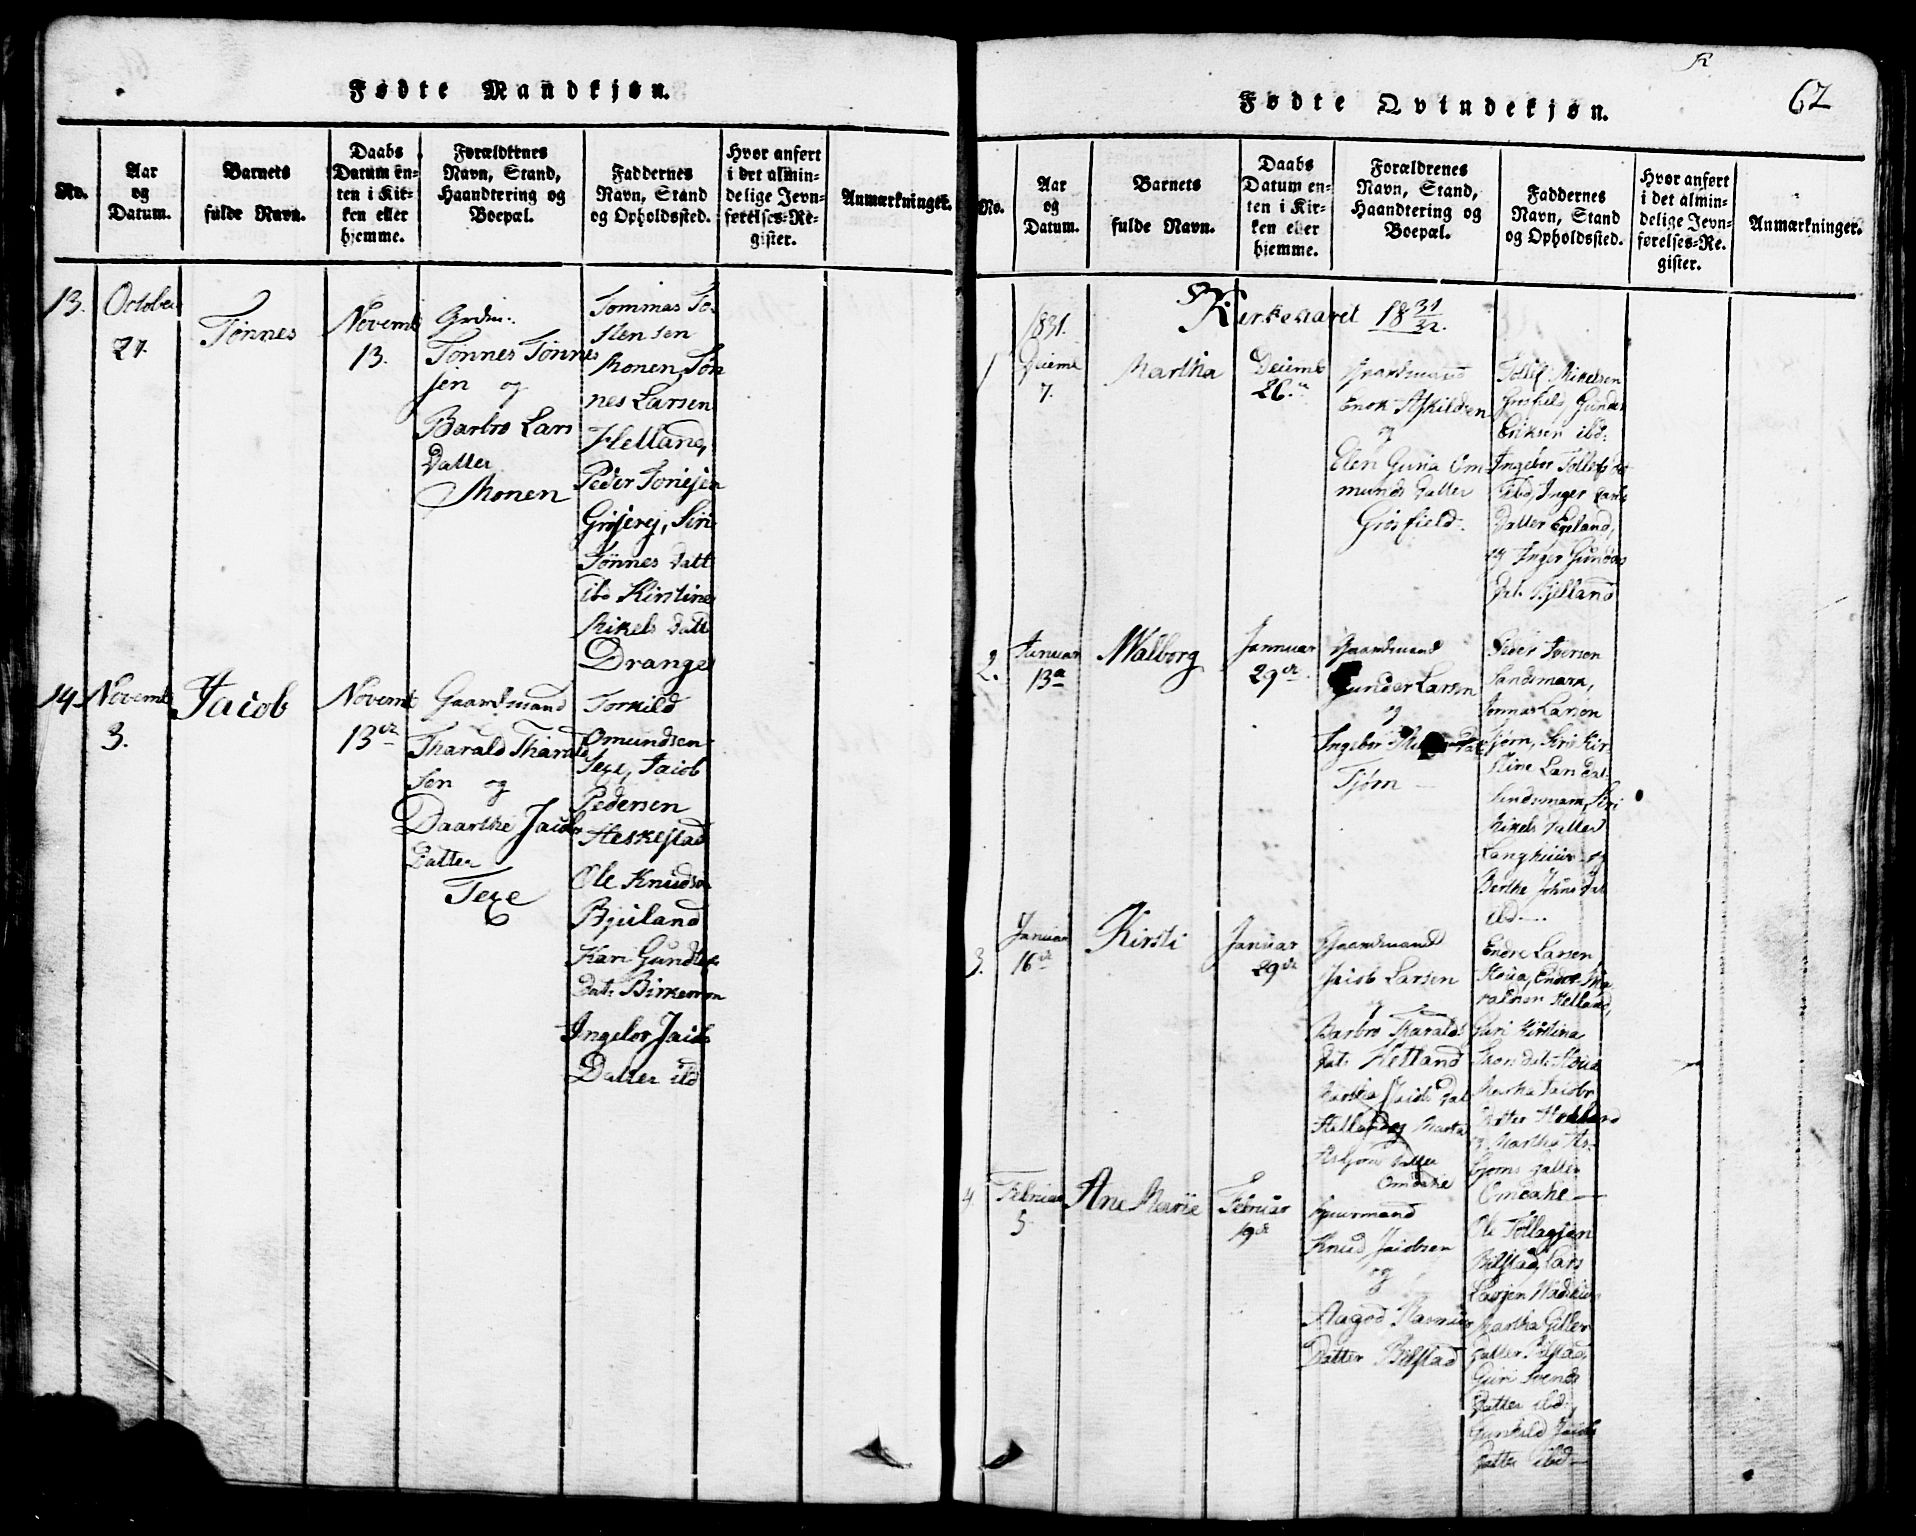 Fødte Mandkjøn.
No.
Aar
og
Datum.
Barnets
fulde Navn.
Daabs
Datum en-
ten i Kir-
ken eller
hjemme.
Forældrenes
Navn, Stand,
Haandtering og
Boepæl.
Faddernes
Navn, Stand
og Opholdssted.
Hvor anført
i det almin-
delige Jevn-
førelses-Re-
gister.
Anmærkninger.
13.
October
27.
Tønnes
Novemb
13.
Tønnes Tønnes
sen og
Barbro Lars
Datter
Monen
Tommas To
stensen
Monen, Tøn
nes Larsen
Helland,
Peder
Siri
Tønnes datt
ibd Kirstine
Mikels datt
Drange
14.
Novemb
3.
Jacob
Novemb
13de
Gaardmand
Tharald Tharald
sen og
Daarthe Jacobs
Datter
Texe
Torkild
Omundsen
Texe, Jacob
Pedersen
Heskestad
Ole Knudsen
Bjuland
Kari
Dat:
Ingebor Jacobs
Datter ibd
Fødte Qvindekjøn.
62
No.
Aar
og
Datum.
Barnets
fulde Navn.
Daabs
Datum en-
ten i Kir-
ken eller
hjemme.
Forældrenes
Navn, Stand,
Haandtering og
Boepæl.
Faddernes
Navn, Stand
og Opholdssted.
Hvor anført
i det almin-
delige Jevn-
førelses-Re-
gister.
Anmærkninger.
Kirkeaaret 18 31/32.
1831.
1
Deiemb
7.
Martha
Deiemb
26.
Gaardmand
Enok Askildsen
og
Elen Guria Om
munds datter
Grosfield.
Tollef Mikelsen
Grosfield, Gunder
Eriksen ibd:
Ingebor Tollefs
ibd, Inger Lars
datter Egeland,
og Inger Gunders
Dat. Bjelland
2.
Januar
13de
Walborg
Januar
29de
Gaardmand
Gunder Larsen
og
Ingebor
Tjørn
Peder Iversen
Sandsmark,
Jonnas Larson
Tjørn, Siri Kir
stine Lars dat:
Sandsmark, Siri
Mikels datter
og
Berthe Johns dat
ibd
3.
Januar
16de
Kirsti
Januar
29de
Gaardmand
Jacob Larsen
og
Barbro Tharalds
dat: Helland
Martha Jacobs dat
Helland og Martha
Asbjørns datter
Omdahl
Endre Larsen
Skoua, Endre Tha
raldsen Helland,
Guri Kirstina
dat: Skoua
Martha Jacobs
datter
og Martha As-
bjørns datter
Omdahl
4.
Februar
5.
Ane Marie
Februar
19de
Gaardmand
Knud Jacobsen
og
Aagod Rasmus
Datter Bilstad
Ole Tollagsen
Bilstad, Lars
Larsen
Martha
datter Bilstad,
Guri Svends
Datter ibd:
Gunhild Jacobs
Datter ibd